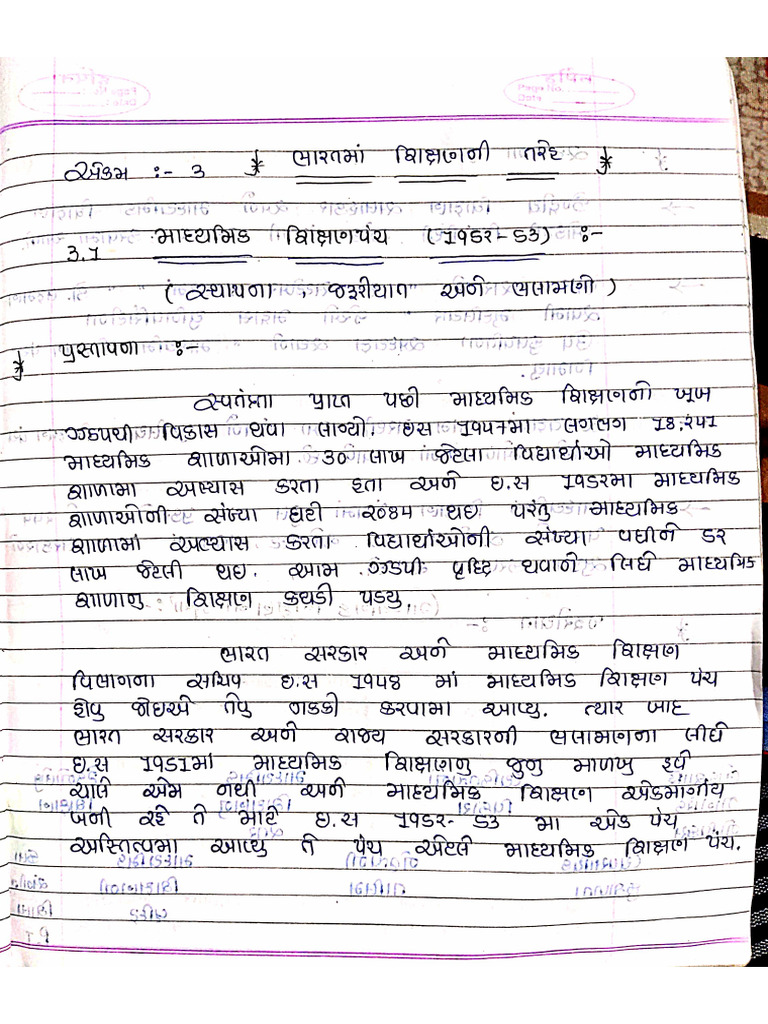 હપિત
Page No.
Date
એકમ :- 3 * ભારતમાં શિક્ષણની તરાહ *
3.1 માધ્યમિક શિક્ષણપંચ (૧૯૫૨-૫૩) :-
( સ્થાપના , જરૂરીયાત અને ભલામણો )
* પ્રસ્તાવના :-
સ્વતંત્રતા પ્રાપ્ત પછી માધ્યમિક શિક્ષણનો ખૂબ
ઝડપથી વિકાસ થવા લાગ્યો. ઇસ ૧૯૪૭માં લગભગ ૧૪,૨૫૧
માધ્યમિક શાળાઓમા ૩૦ લાખ જેટલા વિદ્યાર્થીઓ માધ્યમિક
શાળામા અભ્યાસ કરતા હતા અને ઇ.સ ૧૯૫૨મા માધ્યમિક
શાળાઓની સંખ્યા થઇ પરંતુ માધ્યમિક
શાળામાં અભ્યાસ કરતા વિદ્યાર્થીઓની સંખ્યા વધીને ૫૨
લાખ જેટલી થઇ. આમ ઝડપી વૃધ્ધિ થવાને લિધે માધ્યમિક
શાળાનુ શિક્ષણ કથડી પડયુ.
ભારત સરકાર અને માધ્યમિક શિક્ષણ
વિભાગના સચિવ ઇ.સ ૧૯૪૪ માં માધ્યમિક શિક્ષણ પંચ
હોવુ જોઇએ તેવુ નક્કી કરવામા આવ્યુ. ત્યાર બાદ
ભારત સરકાર અને રાજ્ય સરકારની ભલામણના લીધે
ઇ.સ ૧૯૫૧માં માધ્યમિક શિક્ષણનુ જુનુ માળખુ હવે
ચાલે એમ નથી અને માધ્યમિક શિક્ષણ એકમાર્ગીય
બની રહે તે માટે ઇ.સ ૧૯૫૨-૫૩ મા એક પંચ
અસ્તિત્વમા આવ્યુ તે પંચ એટલે માધ્યમિક શિક્ષણ પંચ.